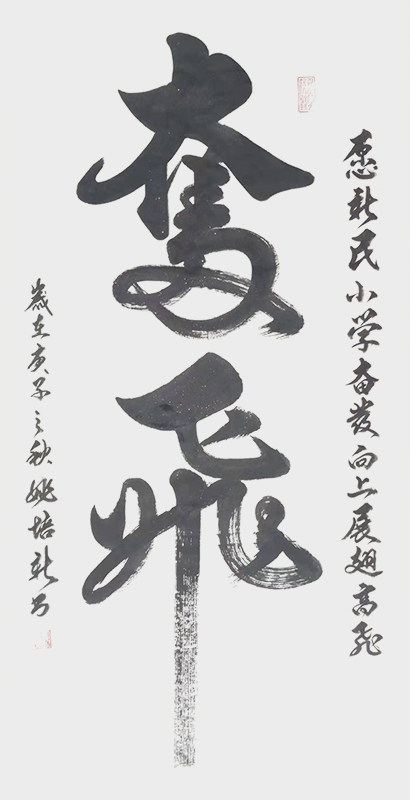 愿新民小学奋發向上展翅高飛
奮飛
歲在庚子之秋姚培新书